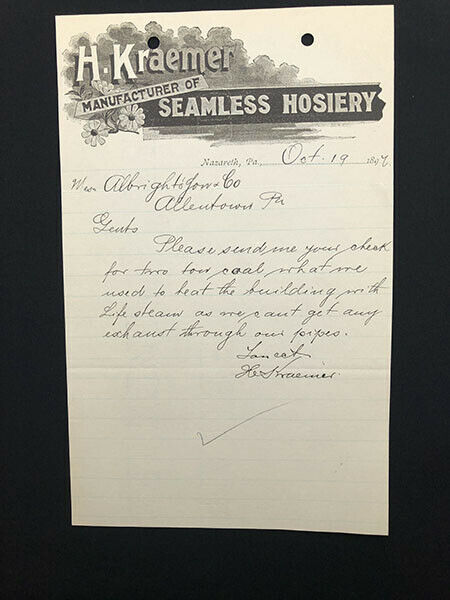 H. Kraemer
MANUFACTURER OF
SEAMLESS HOSIERY
Nazareth, Pa., Oct. 19 1897
Albright & Co
Allentown Pa
Gents
Please send me your check
for two tons coal what we
used to heat the building with
Life steam as we cant get any
exhaust through our pipes.
H Kraemer